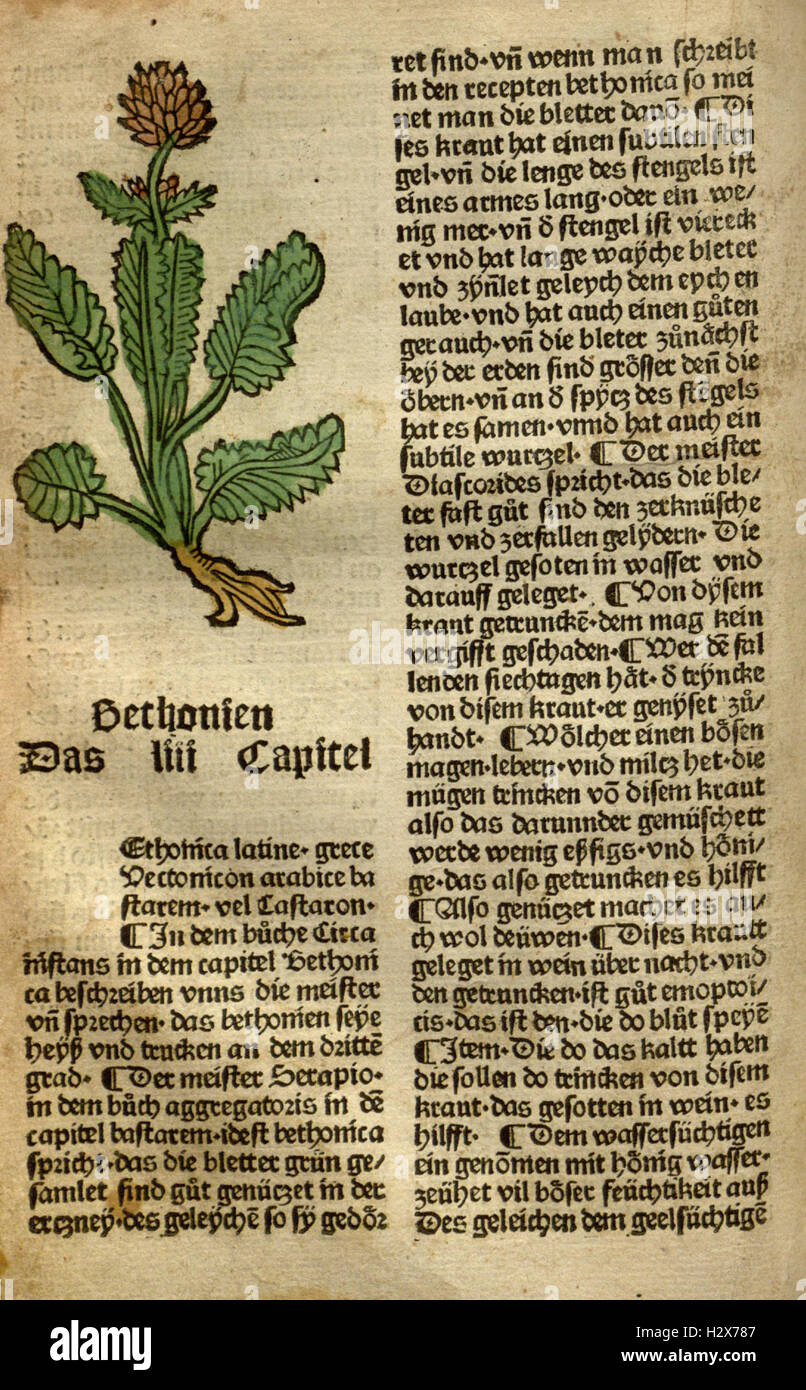 Bethonien
Das liii Capitel
Ethonica latine· grece
Vectonicon arabice ba
starem· vel Castaron·
¶ In dem bůche Circa
instans in dem capitel Bethoni
ca beschreiben vnns die meister
vñ sprechen· das bethonien seye
heyß vnd trucken an dem drittẽ
grad· ¶ Der meister Serapio·
in dem bůch aggregatoris in dẽ
capitel bastarem·idest bethonica
spricht·das die bletter grün ge/
samlet sind gůt genüczet in der
erczney·des geleychẽ so sy gedőr
ret sind·vñ wenn man schreibt
in den recepten bethonica so mei
net man die bletter dauõ· ¶ Di
ses kraut hat einen subtilen sten
gel·vñ die lenge des stengels ist
eines armes lang·oder ein we/
nig mer·vñ d̄ stengel ist viereck
et vnd hat lange waÿche bleter
vnd zÿñlet geleych dem eychen
laube·vnd hat auch einen gůten
gerauch·vñ die bleter zůnåchst
beÿ der erden sind grősser deñ die
őbern·vñ an d̄ spÿcz des stēgels
hat es samen·vnnd hat auch ein
subtile wurczel· ¶ Der meister
Diascorides spricht·das die ble/
ter fast gůt sind den zerknüsche
ten vnd zerfallen gelÿdern· Die
wurczel gesoten in wasser vnd
darauff geleget· ¶ Von dÿsem
kraut getrunckẽ·dem mag kein
vergifft geschaden·¶ Wer dẽ fal
lenden siechtagen håt· d̄ trÿncke
von disem kraut·er genÿset zů/
handt· ¶ Wőlcher einen bősen
magen·lebern·vnd milcz het·die
mügen trincken võ disem kraut
also das darunnder gemüschett
werde wenig eßsigs·vnd hőni/
ge·das also getruncken es hilfft
¶ Also genüczet machet es au/
ch wol deüwen·¶ Dises krautt
geleget in wein über nacht·vnd
den getruncken·ist gůt emoptoi/
cis·das ist den·die do blůt speyẽ
¶ Item·Die do das kaltt haben
die sollen do trincken von disem
kraut·das gesotten in wein· es
hilfft· ¶ Dem wassersüchtigen
ein genõmen mit hőnig wasser·
zeühet vil bőser feüchtikeit auß
Des geleichen dem geelsüchtigẽ
alamy stock photo
alamy
Image ID: H2X787
www.alamy.com